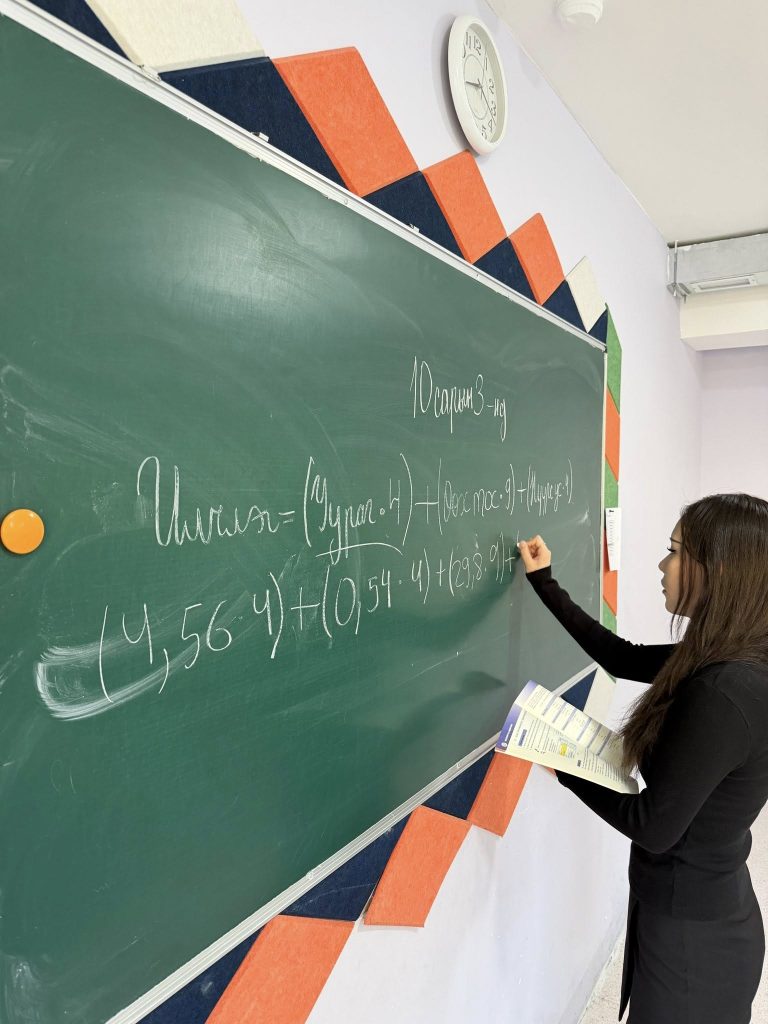 10 сарын 3-нд
Илчлэг=(Уураг·4)+(Өөх тос·9)+(Нүүрс ус·4)
(4,56·4)+(0,54·4)+(29,8·9)+(